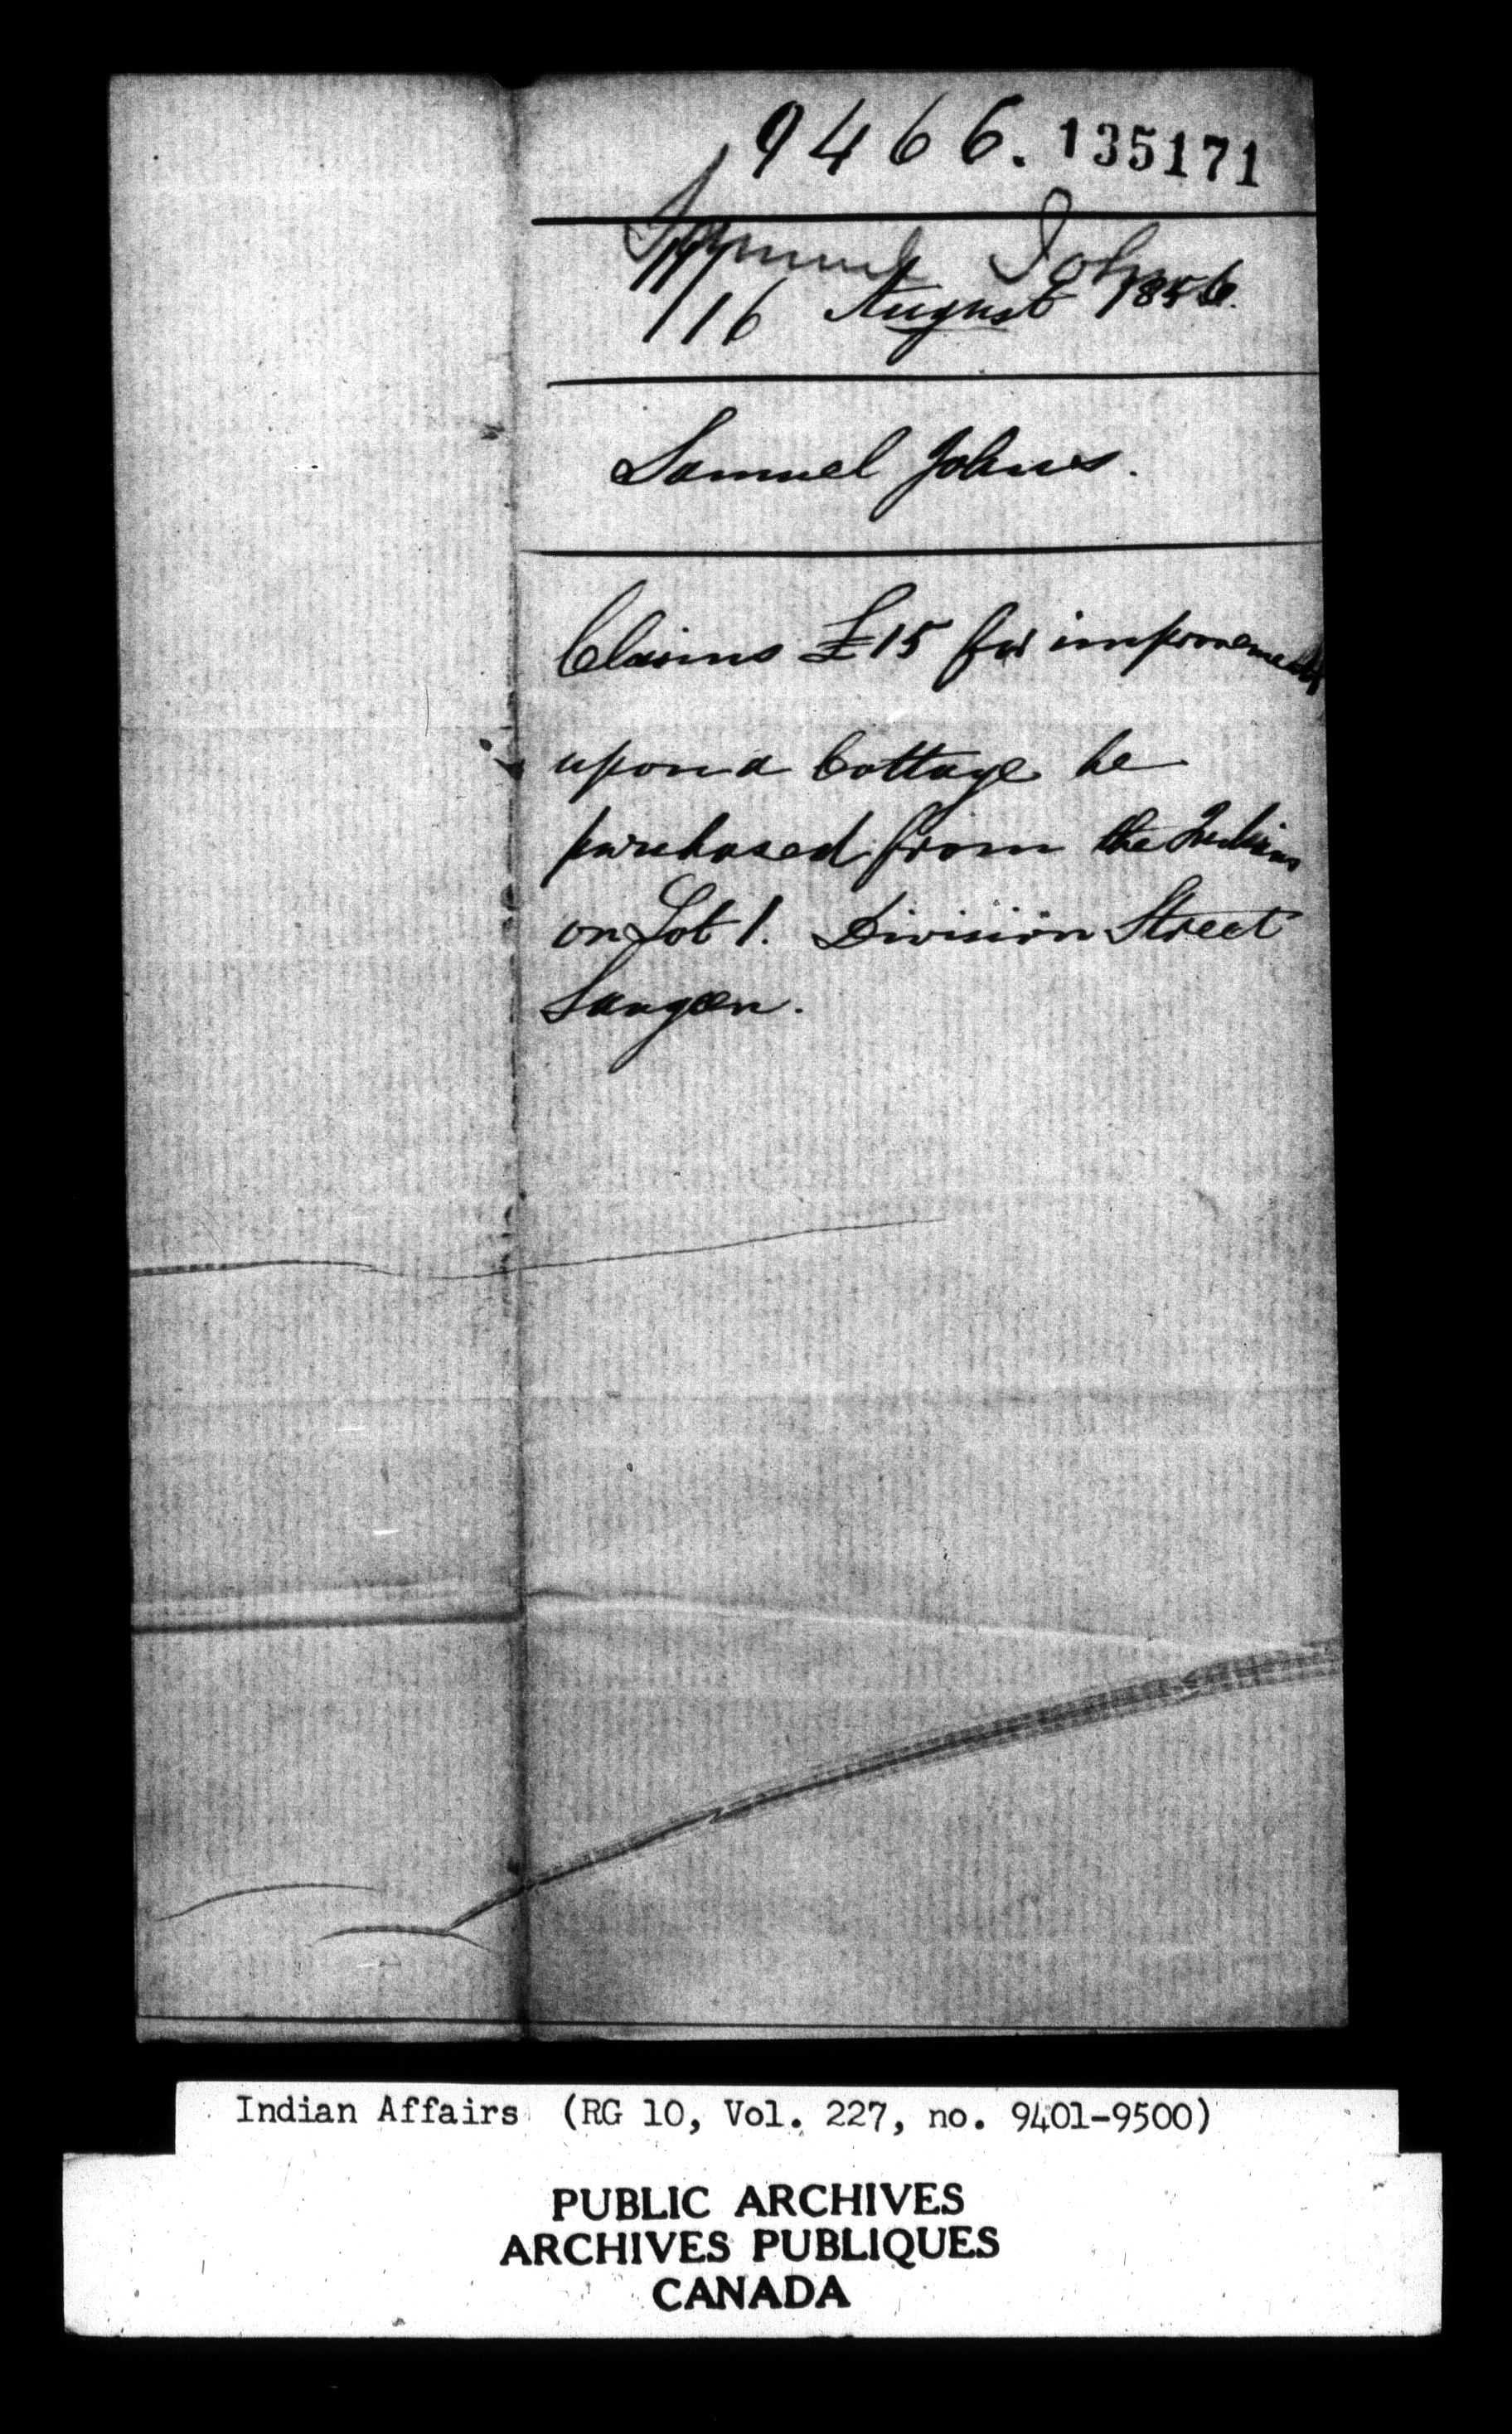 9466. 135171
Samuel Johns
16 August 1856.
Samuel Johns.
Claims £15 for improvements
upon a Cottage he
purchased from the Indians
on Lot 1. Division Street
Saugeen.
Indian Affairs (RG 10, Vol. 227, no. 9401-9500)
PUBLIC ARCHIVES
ARCHIVES PUBLIQUES
CANADA